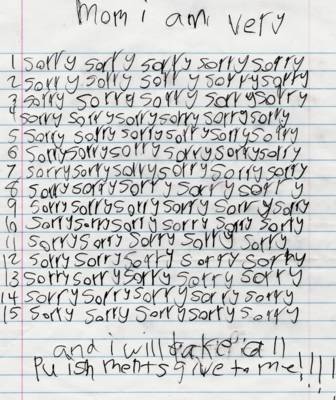 Mom i am very
1 sorry sorry sorry sorry sorry
2 sorry sorry sorry sorry sorry
3 sorry sorry sorry sorry sorry
4 sorry sorry sorry sorry sorry sorry
5 sorry sorry sorry sorry sorry sorry
6 sorry sorry sorry sorry sorry sorry
7 sorry sorry sorry sorry sorry sorry
8 sorry sorry sorry sorry sorry
9 sorry sorry sorry sorry sorry sorry
10 sorry sorry sorry sorry sorry sorry
11 sorry sorry sorry sorry sorry
12 sorry sorry sorry sorry sorry
13 sorry sorry sorry sorry sorry
14 sorry sorry sorry sorry sorry
15 sorry sorry sorry sorry sorry
and i will take all
Puishments give to me!!!!